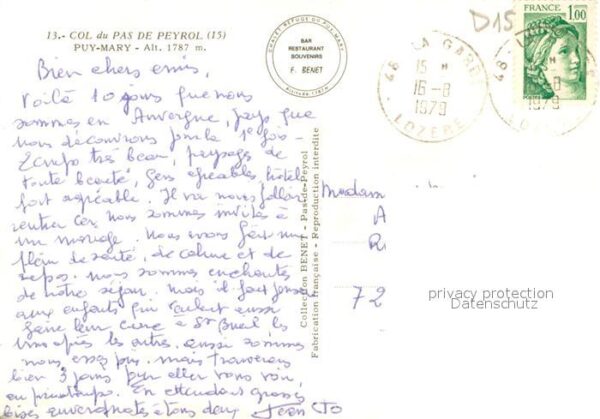 13.- COL du PAS DE PEYROL (15)
PUY-MARY - Alt. 1787 m.
CHALET REFUGE DU PUY MARY
BAR
RESTAURANT
SOUVENIRS
F. BENET
Altitude 1787 m
D15
48 LA GARDE
15 H
16-8
1979
LOZERE
FRANCE
1,00
POSTES
Bien chers amis,
Voilà 10 jours que nous
sommes en Auvergne, pays que
nous découvrons pour la 1e fois -
Temps très beau, paysages de
toute beauté, gens agréables, hôtel
fort agréable. Il va nous falloir
rentrer car nous sommes invités à
un mariage. Nous avons fait un
plein de santé, de calme et de
repos. Nous sommes enchantés
de notre séjour. Mais il faut penser
aux enfants qui veulent aussi
faire leur cure à St les
uns après les autres. aussi sommes
nous pris. mais trouverons
bien 3 jours pour aller vous voir,
au printemps. En attendant grosses
bises auvergnates à tous deux Jean Jo
Collection BENET - Pas-de-Peyrol
Fabrication française - Reproduction interdite
Madam
A
R
72
privacy protection
Datenschutz